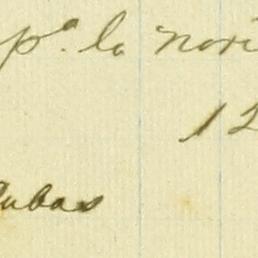 pª lo novi
12
Cubas